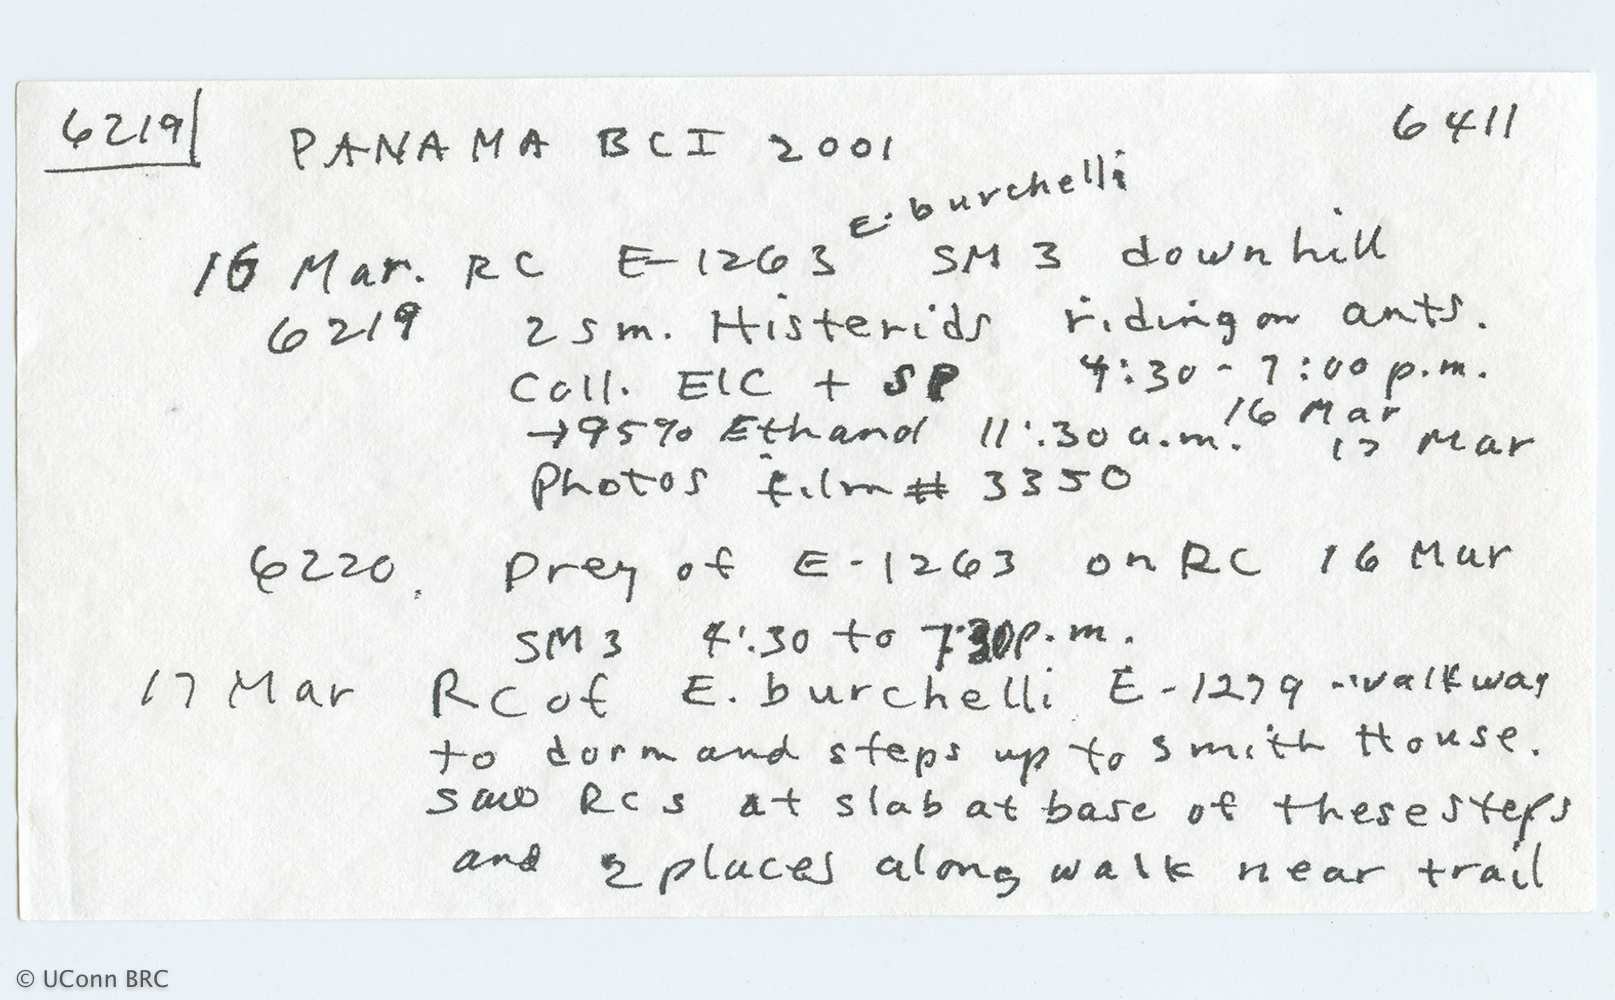 6219 PANAMA BCI 2001 6411
E. burchelli
16 Mar. RC E-1263 SM 3 downhill
6219 2 sm. Histerids riding on ants.
Coll. EIC + SP 4:30 - 7:00 p.m.
16 Mar
→95% Ethanol 11:30 a.m. 17 Mar
Photos film # 3350
6220. Prey of E-1263 on RC 16 Mar
SM 3 4:30 to 7:30 p.m.
17 Mar RC of E. burchelli E-1279 walkway
to dorm and steps up to Smith House.
Saw RCs at slab at base of these steps
and 2 places along walk near trail
© UConn BRC